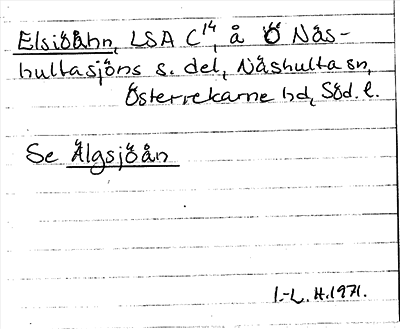 Elsiöåhn, LSA C¹⁴, å Ö Näs-
hultasjöns s. del, Näshulta sn,
Österrekarne hd, Söd. l.
Se Älgsjöån
I.-L. H. 1971.